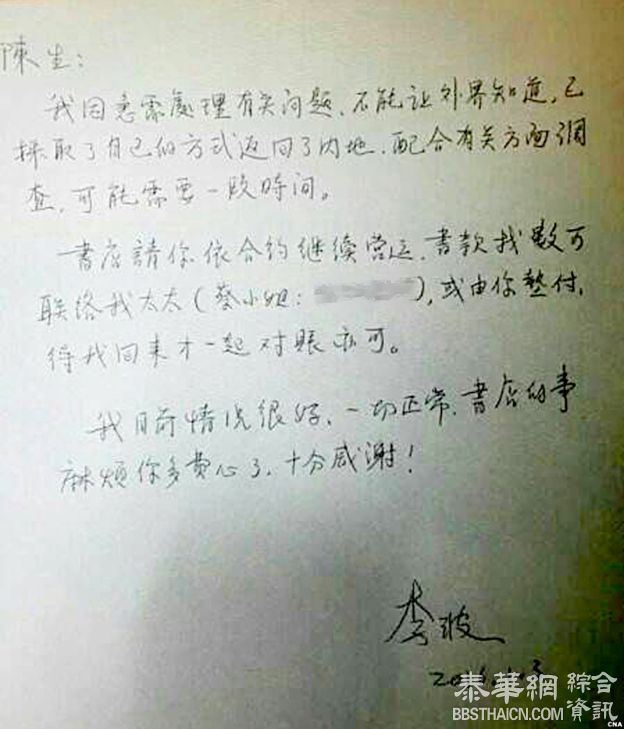 陳生：
我因急需處理有关问题，不能让外界知道，已
採取了自己的方式返回了内地，配合有关方面調
查，可能需要一段時间。
書店請你依合约继续营运，書款找數可
联络我太太（蔡小姐：
），或由你墊付，
得我回来才一起对賬亦可。
我目前情况很好，一切正常，書店的事
麻煩你多費心了，十分感謝！
李波
泰華網 綜合
資訊
BBSTHAICN.COM
CNA